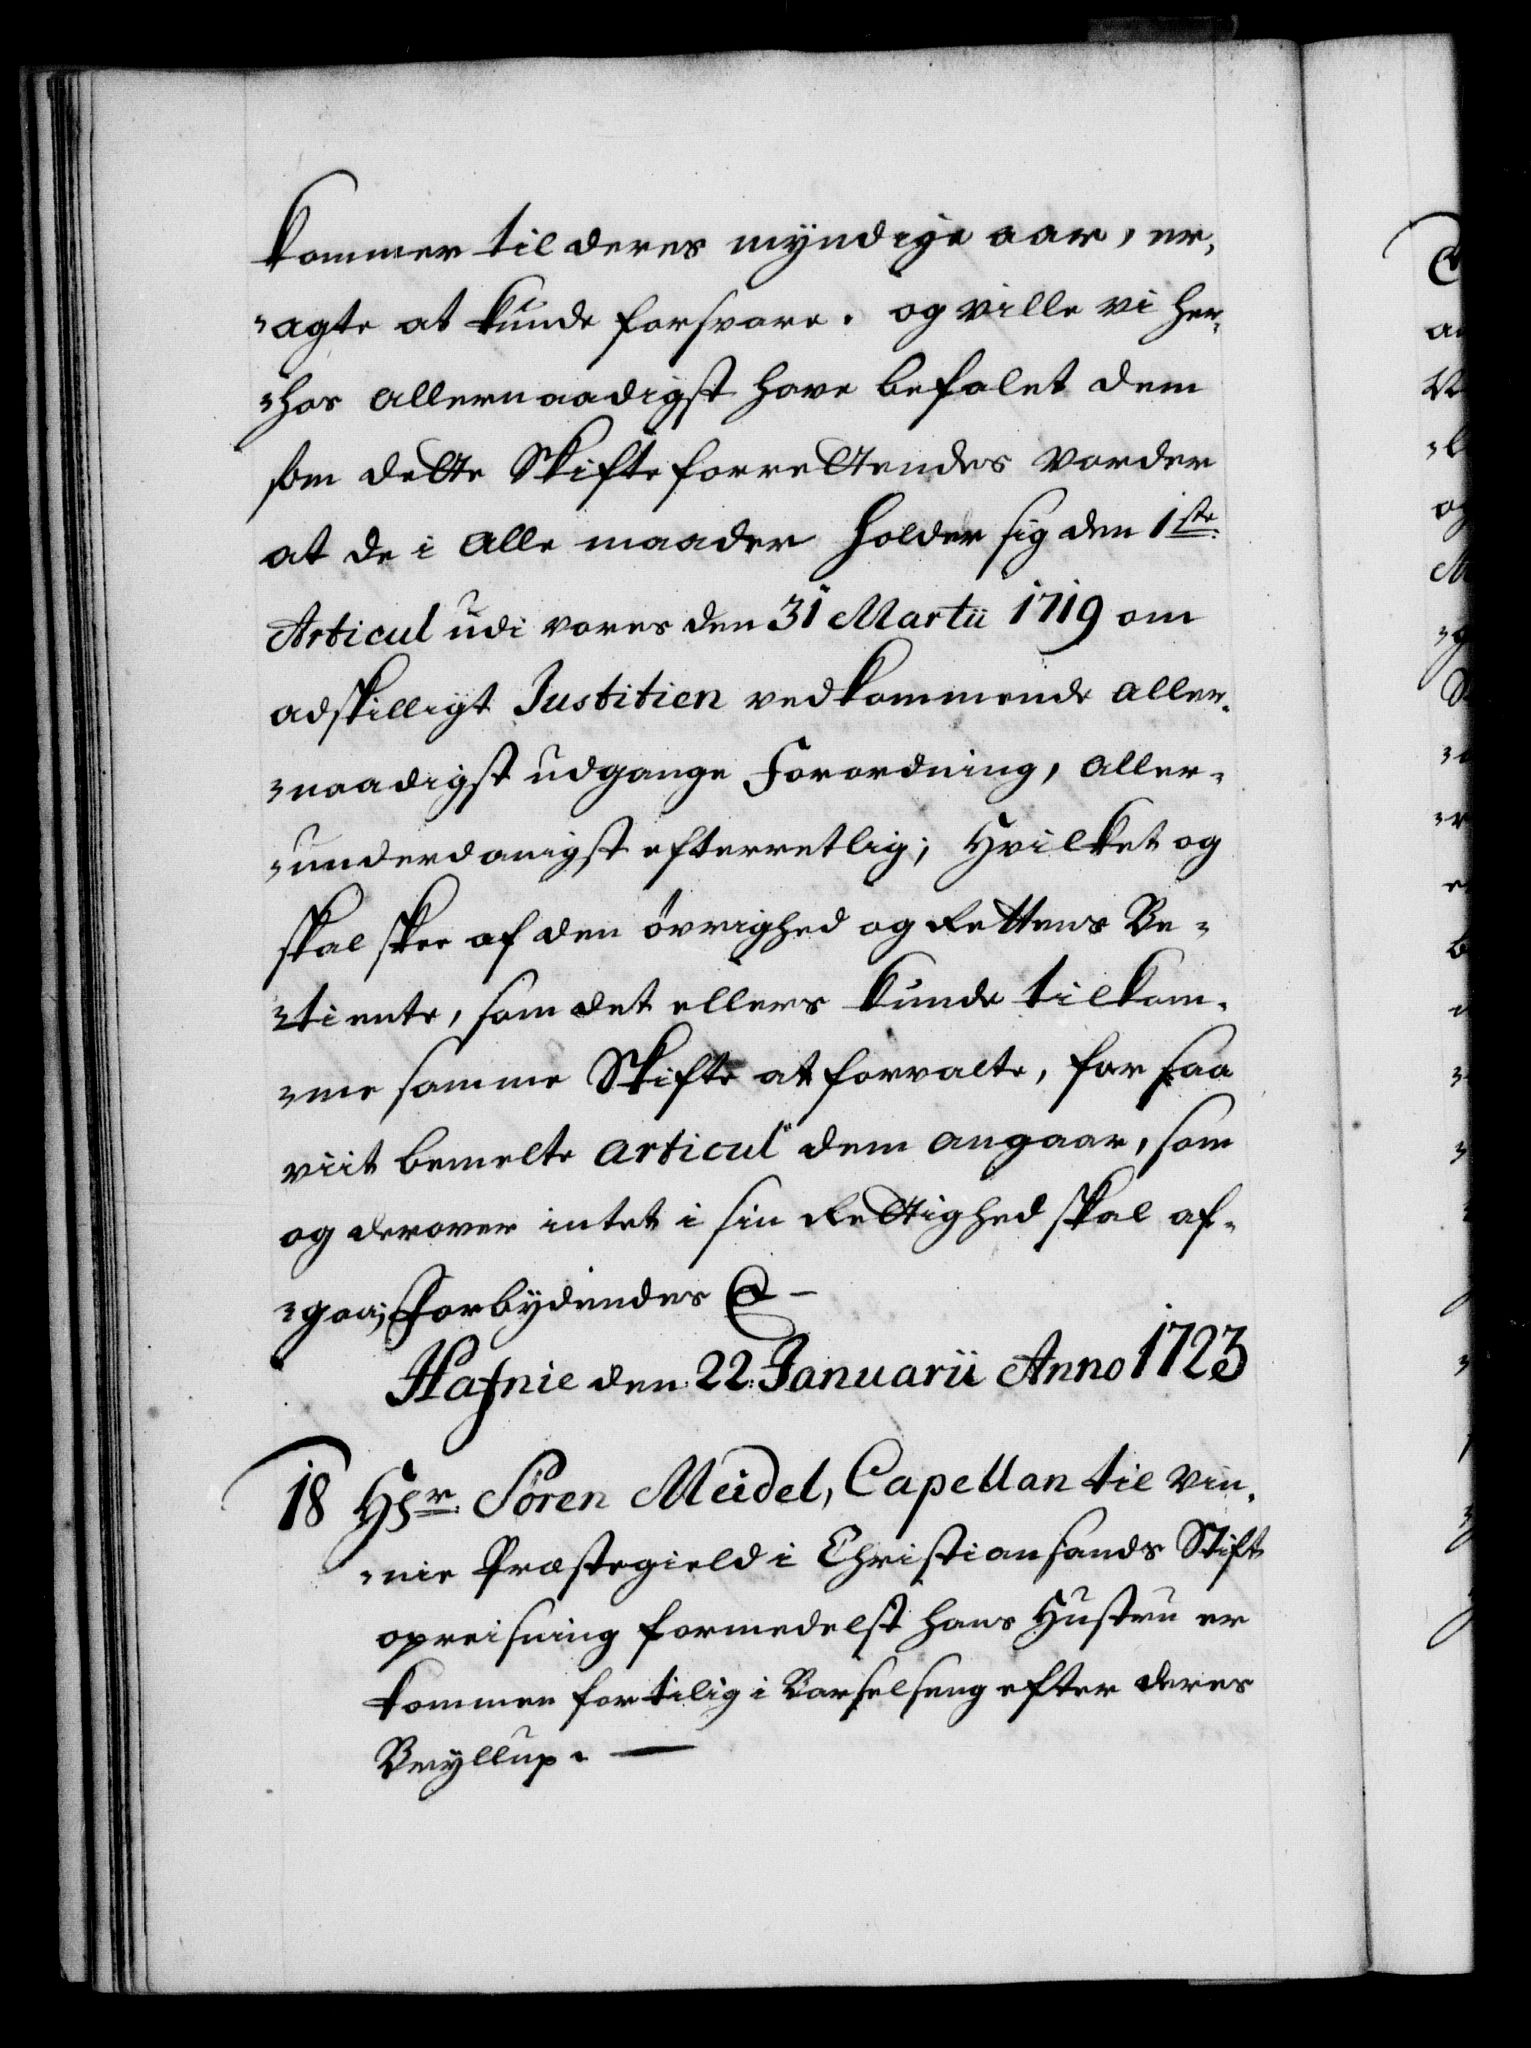 kommer til deres myndige aar, er¬
¬agte at kunde forsvare. og ville vi her¬
¬hos allernaadigst have befalet dem
som dette Skifte forrettendes vorder
at de i alle maader holder sig den 1ste
Articul udi vores den 31 Martii 1719 om
adskilligt Justitien vedkommende aller¬
¬naadigst udgangne Forordning, aller¬
¬underdanigst efterretlig; Hvilket og
skal skee af den övrighed og Rettens Be¬
¬tiente, som det ellers kunde tilkom¬
¬me samme Skifte at forvalte, for saa
viit bemelte articul dem angaar, som
og derover intet i sin Rettighed skal af¬
¬gaa; Forbydendes &
Hafnie den 22 Januarii Anno 1723
18 Hr. Sören Meidel, Capellan til Vin¬
¬nie Præstegield i Christiansands Stift
opreisning formedelst hans Hustru er
kommen for tilig i Barselseng efter deres
Bryllup. —